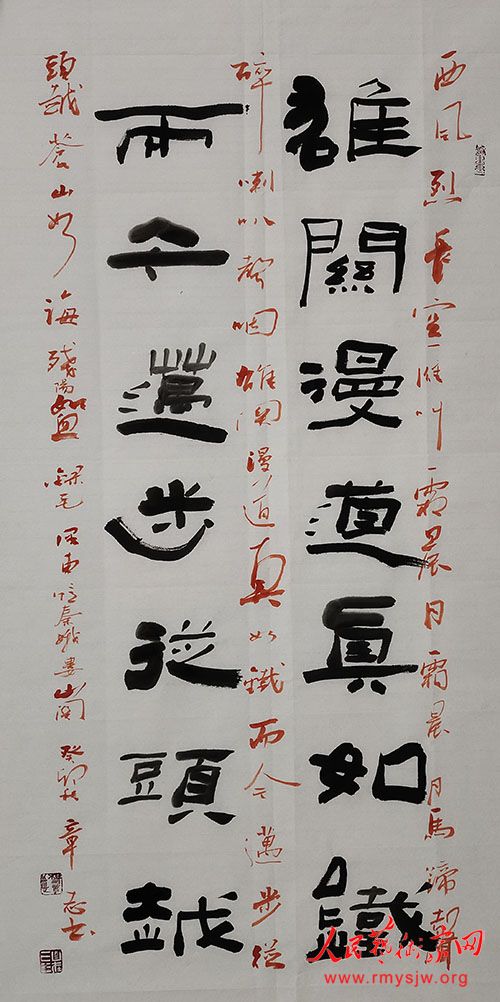 西风烈長空雁叫霜晨月霜晨月馬蹄聲
雄關漫道真如鐵
碎喇叭聲咽雄関漫道真如鐵而今邁步從
而今邁步從頭越
頭越蒼山如海殘陽如血 錄毛澤東憶秦娥婁山関 癸卯秋 章志书
人民藝術家网
www.rmysjw.org